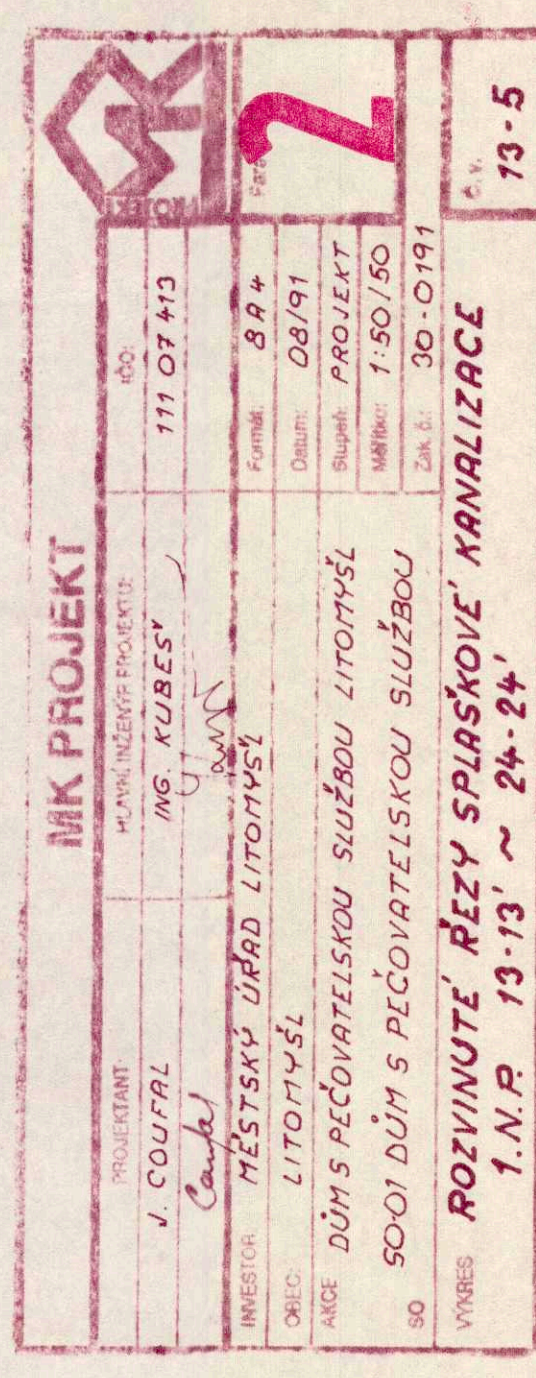 MK PROJEKT
MK
PROJEKT
PROJEKTANT: HLAVNÍ INŽENÝR PROJEKTU: IČO:
J. COUFAL ING. KUBEŠ 111 07 413
Coufal
INVESTOR: MĚSTSKÝ ÚŘAD LITOMYŠL
OBEC: LITOMYŠL
AKCE DŮM S PEČOVATELSKOU SLUŽBOU LITOMYŠL
SO SO-01 DŮM S PEČOVATELSKOU SLUŽBOU
Formát: 8 A 4
Datum: 08/91
Stupeň: PROJEKT
Měřítko: 1:50/50
Zak. č.: 30-0191
Paré
2
VÝKRES ROZVINUTÉ ŘEZY SPLAŠKOVÉ KANALIZACE
1.N.P. 13-13' ~ 24-24'
Č. v.
13-5